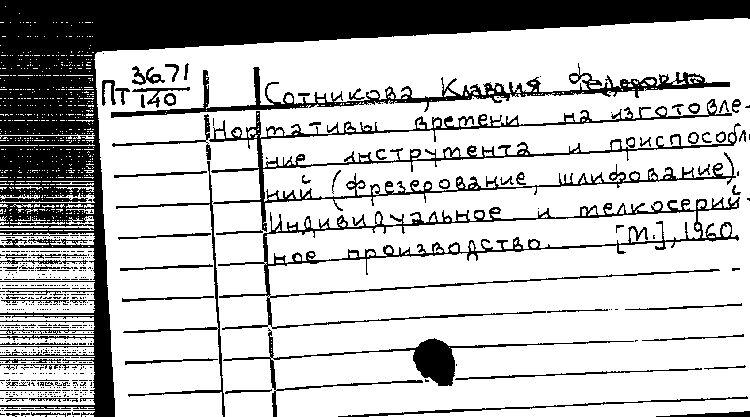 Пт 36.71/140
Сотникова, Клавдия Федоровна
Нормативы времени на изготовле-
ние инструмента и приспособле
ний. (фрезерование, шлифование).
Индивидуальное и мелкосерий-
ное производство. [М.], 1960.